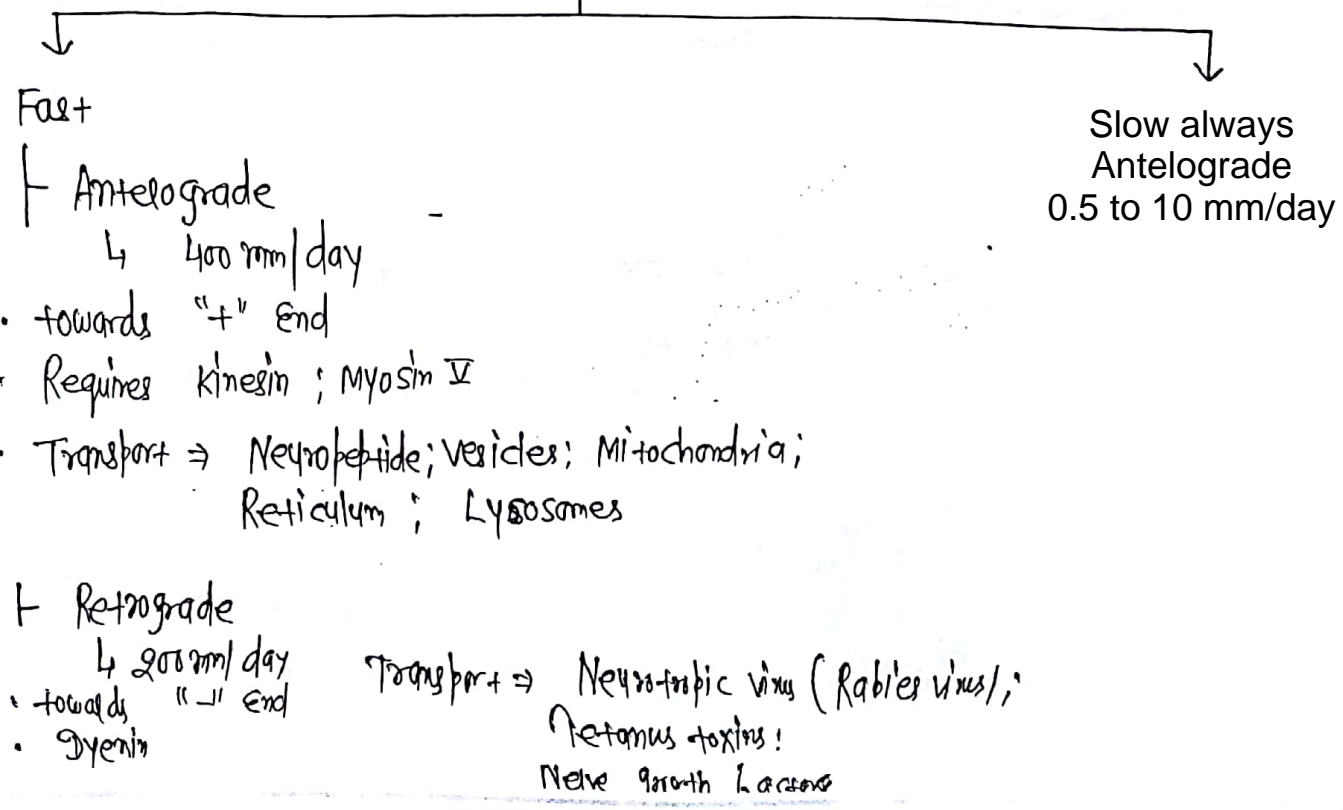 Fast
Antelograde
↳ 400 mm/day
• towards "+" End
• Requires Kinesin ; Myosin V
• Transport ⇒ Neuropeptide; Vesicles; Mitochondria;
Reticulum ; Lysosomes
Retrograde
↳ 200 mm/day
• towards "-" End
• Dyenin
Transport ⇒ Neurotropic virus (Rabies virus);
Tetanus toxins;
Nerve growth
Slow always
Antelograde
0.5 to 10 mm/day